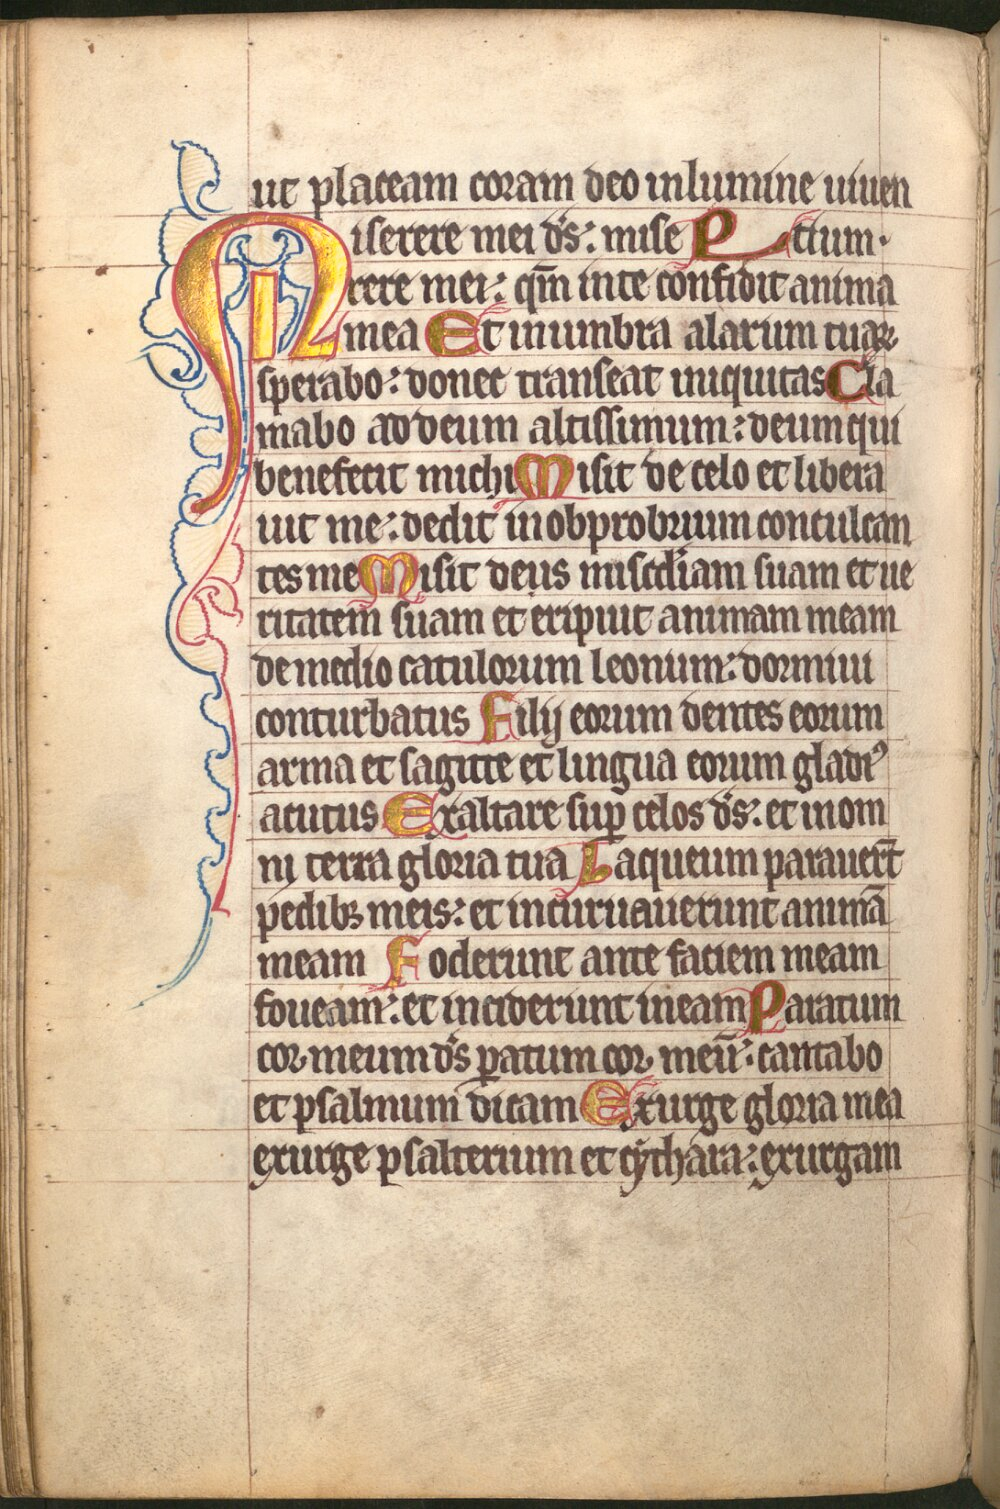 ut placeam coram deo in lumine uiuen
Miserere mei ds̄: mise P ctium·
rere mei: qm̄ in te confidit anima
mea Et in umbra alarum tuaꝝ
sperabo: donec transeat iniquitas Cla
mabo ad deum altissimum: deum qui
benefecit michi Misit de celo et libera
uit me: dedit in obprobrium conculcan
tes me Misit deus misc̄diam suam et ue
ritatem suam et eripuit animam meam
de medio catulorum leonum: dormiui
conturbatus Filij eorum dentes eorum
arma et sagitte et lingua eorum gladiꝰ
acutus Exaltare suꝑ celos ds̄: et in om
ni terra gloria tua Laqueum parauer̄t
pedibꝫ meis: et incuruauerunt animā
meam Foderunt ante faciem meam
foueam: et inciderunt in eam Paratum
cor meum ds̄ ꝑatum cor meū: cantabo
et psalmum dicam Exurge gloria mea
exurge psalterium et cythara: exurgam